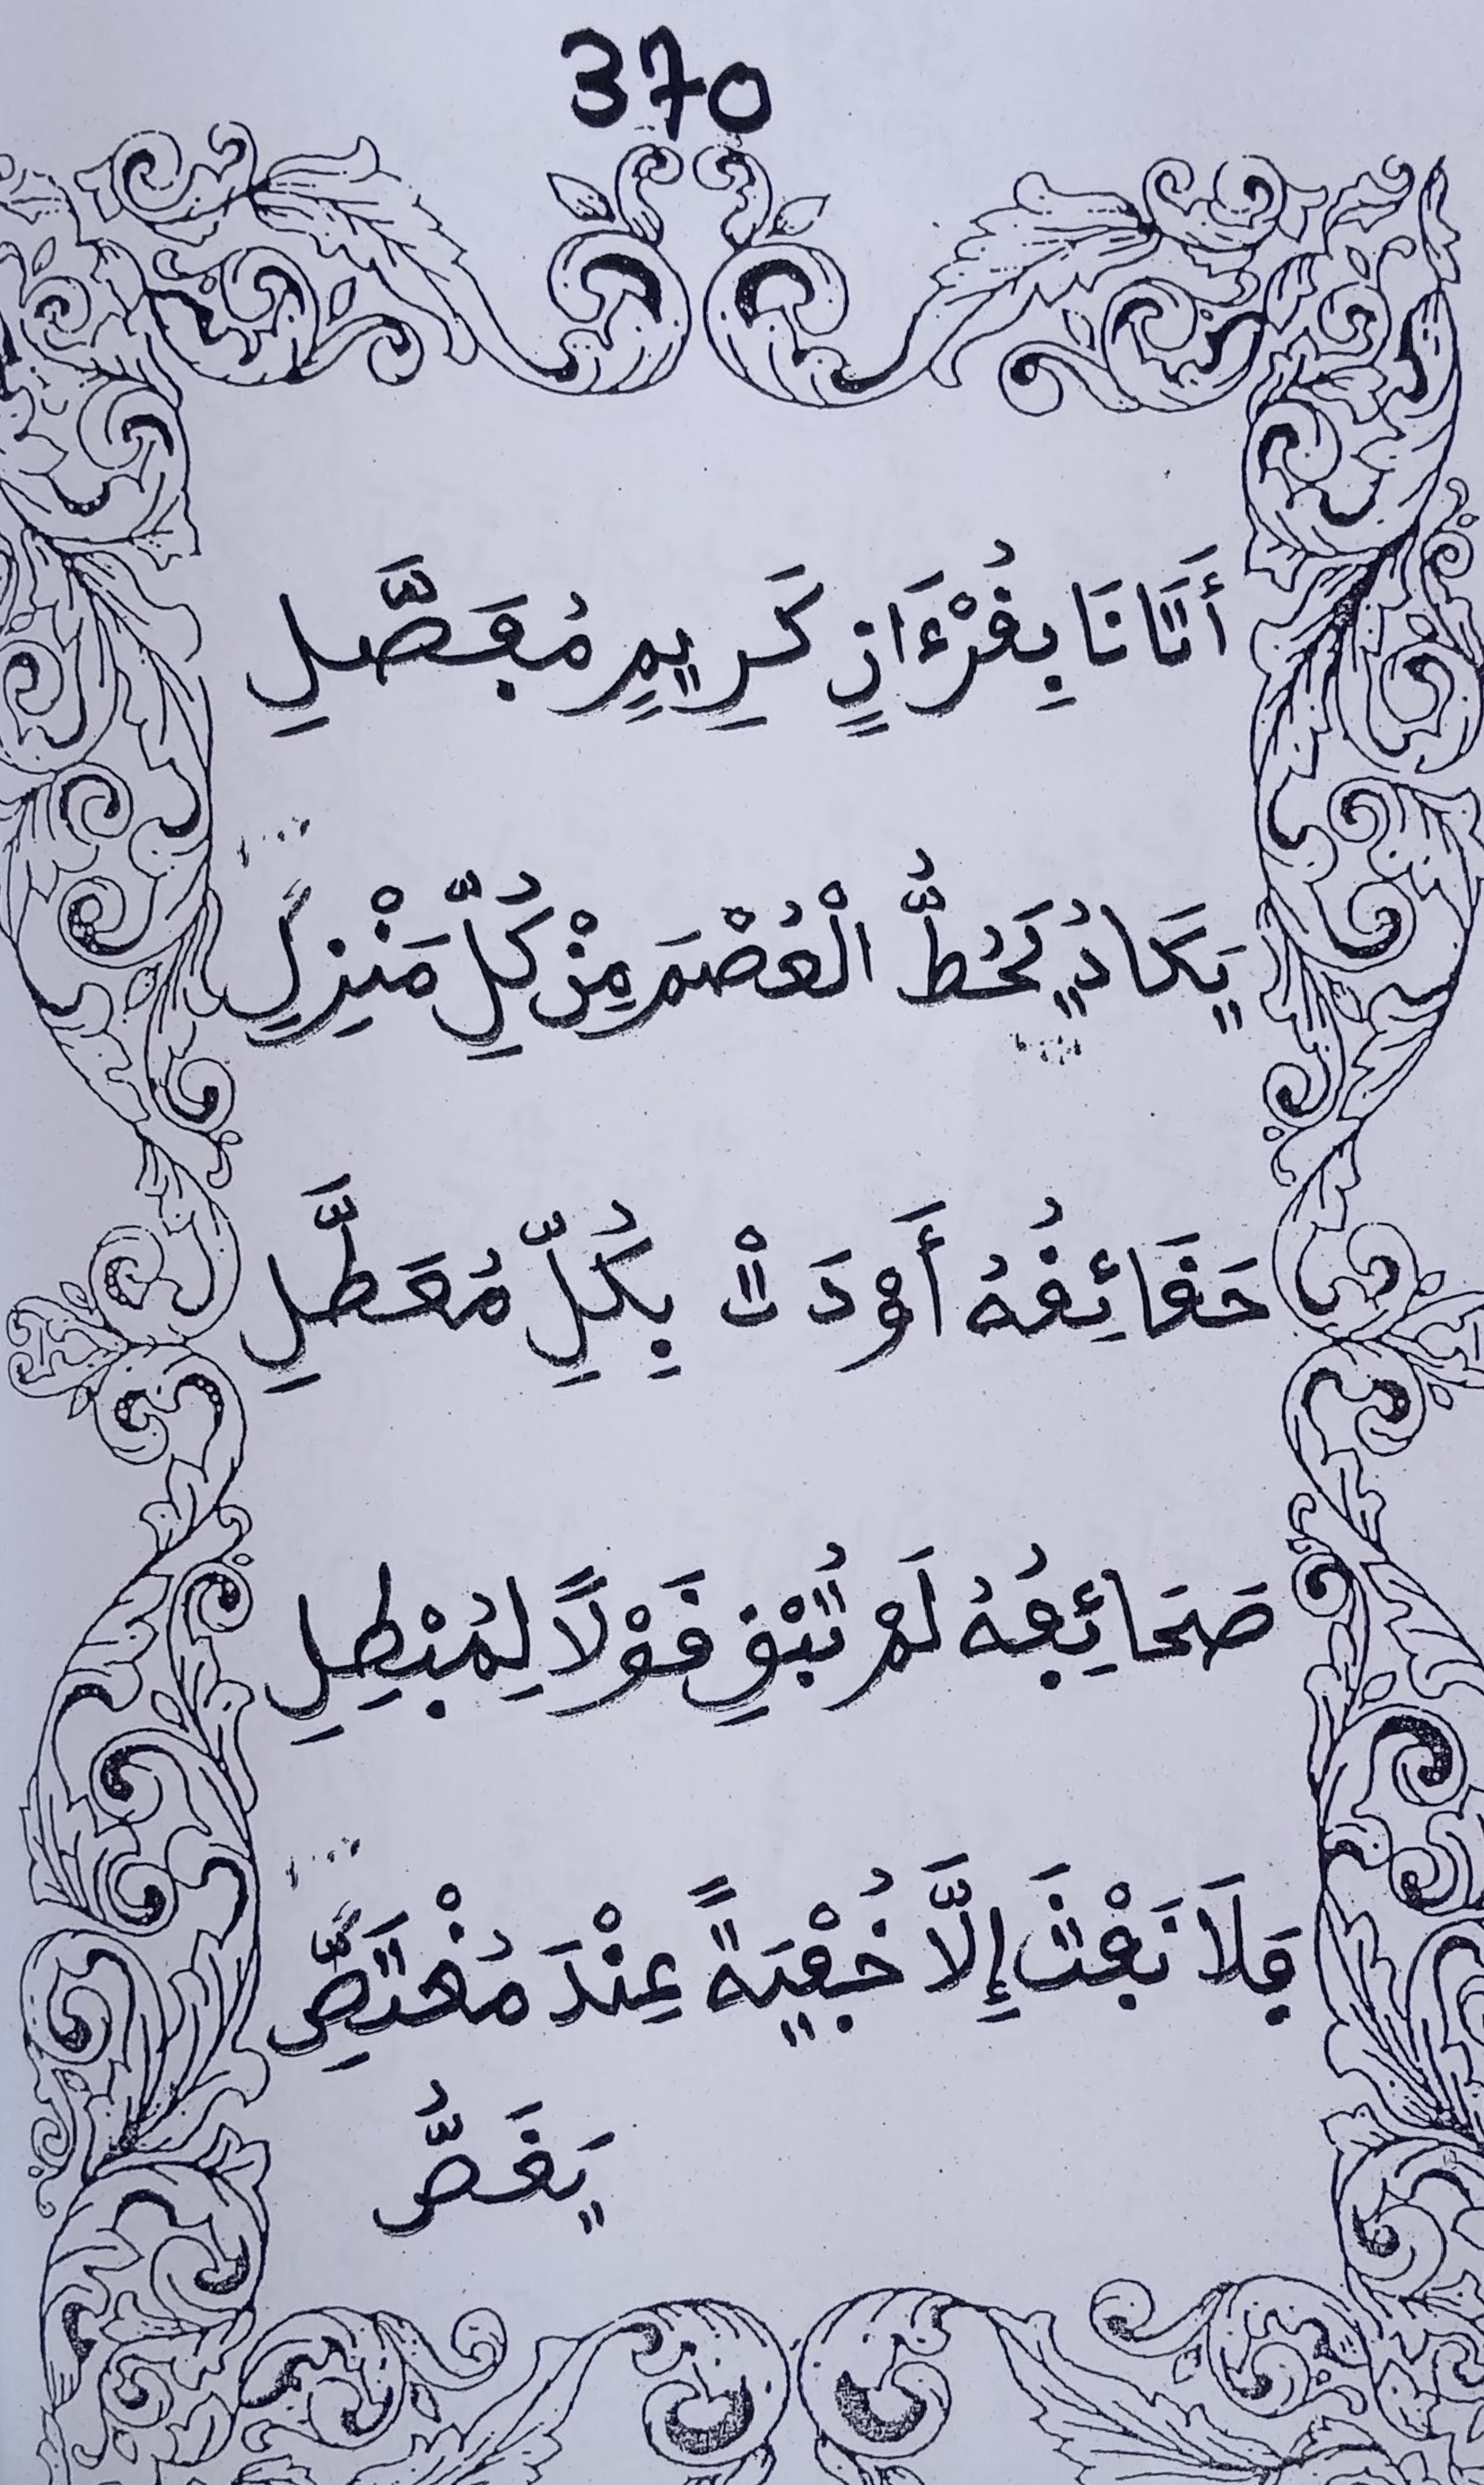 370
أَتَانَا بِقُرْءَانٍ كَرِيمٍ مُفَصَّلِ
يَكَادُ يَحُطُّ الْعُصْمَ مِنْ كُلِّ مَنْزِلٍ
حَقَائِقُهُ أَوْدَتْ بِكُلِّ مُعَطَّلِ
صَحَائِفُهُ لَمْ تُبْقِ قَوْلًا لِمُبْطِلِ
فَلَا نَفْثَ إِلَّا خُفْيَةً عِنْدَ مُخْتَصِّ
يَغَصُّ